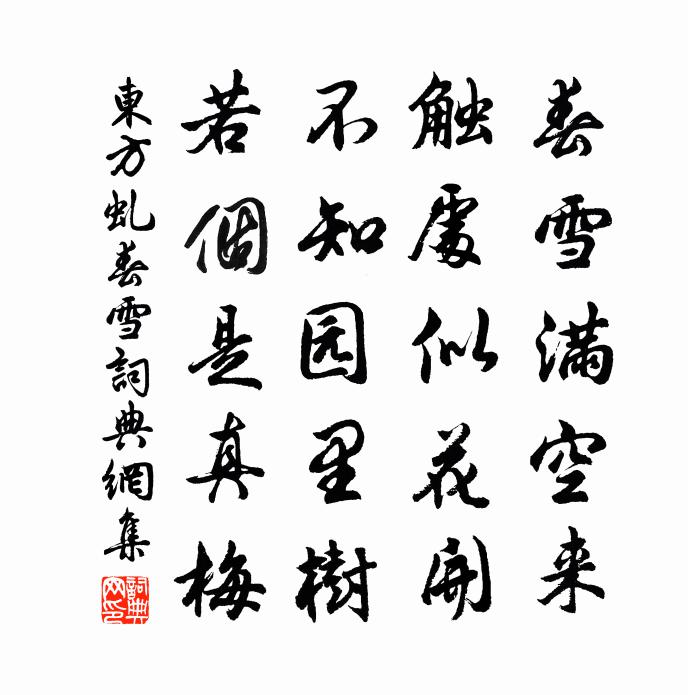 春雪满空来
触處似花開
不知园里樹
若個是真梅
東方虬春雪詞典網集
詞典網印